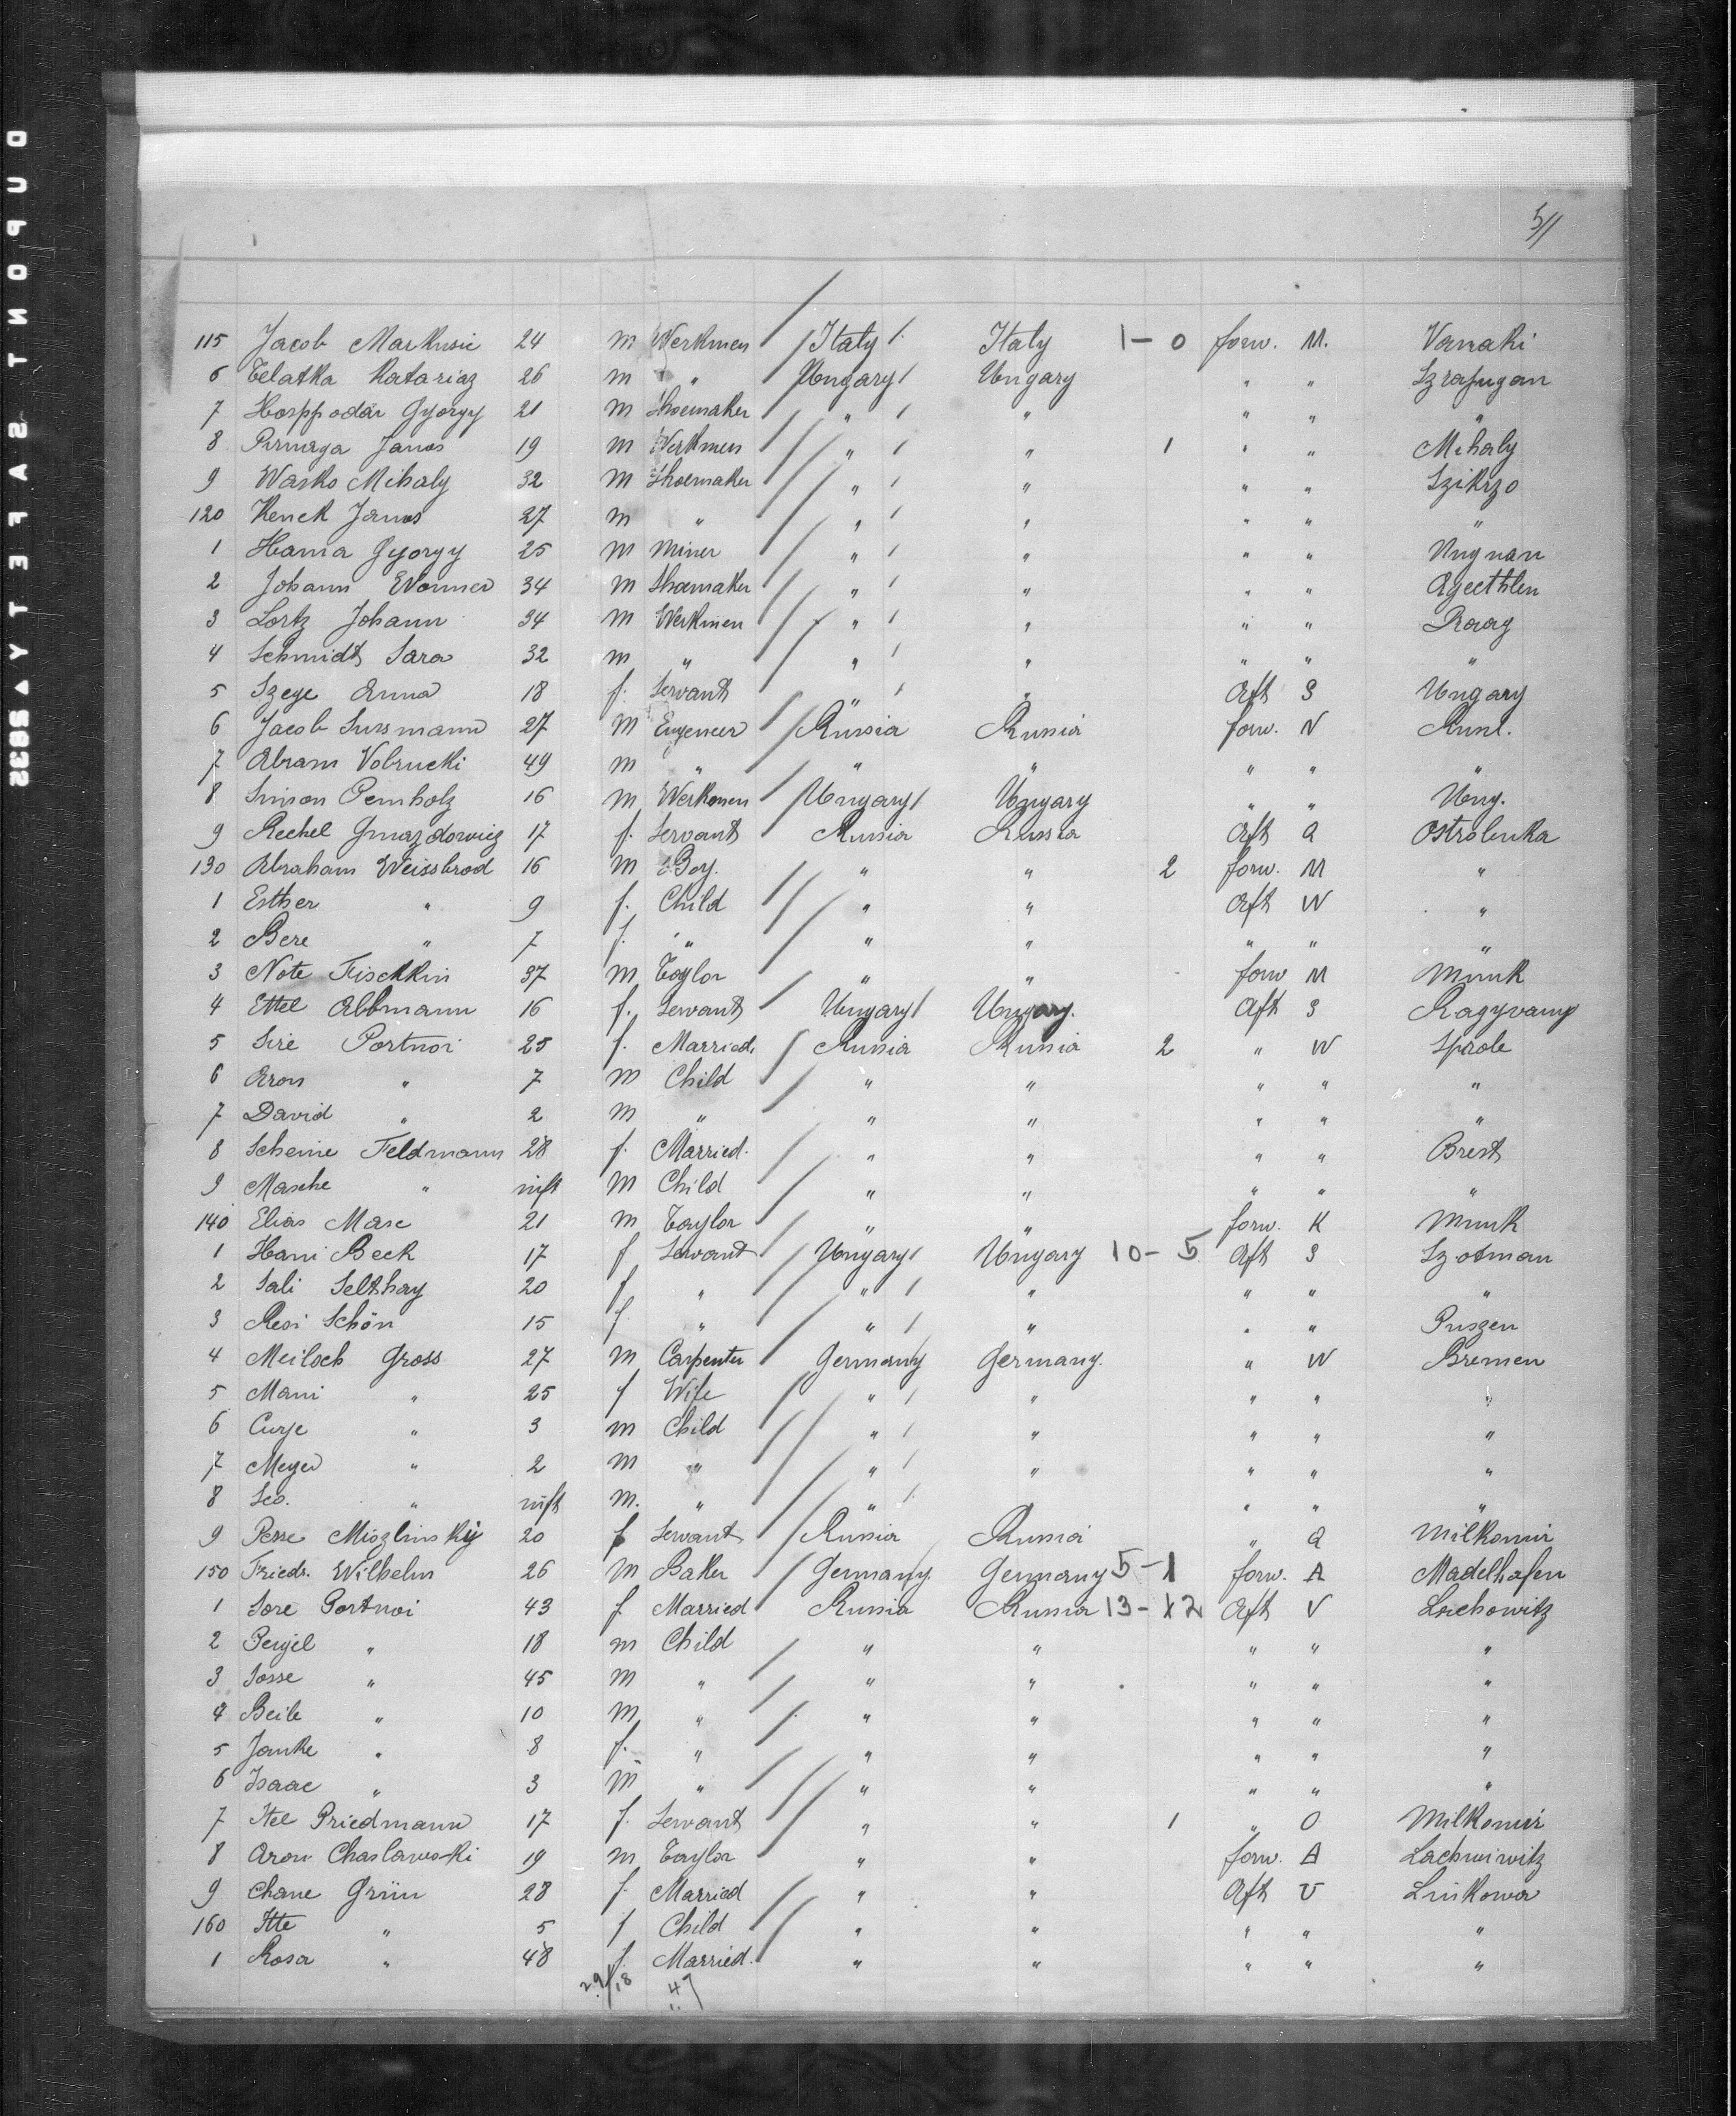 DUPONT SAFETY 8832
5/1
115 Jacob Markusic 24 m Werkmen Italy Italy 1-0 forw. M. Varraki
6 Telatka Katariaz 26 m " Ungary Ungary " " Szrafugan
7 Hosppodár Gyorgy 21 m Shoemaker " " " " "
8 Purnaga Janos 19 m Werkmen " " 1 " " Mihaly
9 Wasko Mihaly 32 m Shoemaker " " " " Szikszo
120 Kenek Janos 27 m " " " " " "
1 Hama Gyorgy 25 m Miner " " " " Ungnan
2 Johann Wonner 34 m Shoemaker " " " " Ageethlen
3 Lortz Johann 34 m Werkmen " " " " Raag
4 Schmidt Sara 32 m " " " " " "
5 Szege Anna 18 f. Servant " " Aft S Ungary
6 Jacob Sussmann 27 m Engeneer Russia Russia forw. N Russl.
7 Abram Vobrucki 49 m " " " " " "
8 Simon Pernholz 16 m Werkmen Ungary Ungary " " Ung.
9 Rechel Gmazdowicz 17 f. Servant Russia Russia Aft a Ostrolenka
130 Abraham Weissbrod 16 m Boy. " " 2 forw. M "
1 Esther " 9 f. Child " " Aft W "
2 Bere " 7 f. " " " " " "
3 Note Fischkin 37 m Taylor " " forw M Minsk
4 Ettel Abbmann 16 f. Servant Ungary Ungary. Aft S Ragyvany
5 Sire Portnoi 25 f. Married Russia Russia 2 " W Sprole
6 Aron " 7 m Child " " " " "
7 David " 2 m " " " " " "
8 Scheine Feldmann 28 f. Married. " " " " Brest
9 Masche " inft m Child " " " " "
140 Elias Marc 21 m Taylor " " forw. K Minsk
1 Hani Beck 17 f Servant Ungary Ungary 10-5 Aft S Szotman
2 Sali Selthay 20 f " " " " " "
3 Resi Schön 15 f " " " " " Puszen
4 Meiloch Gross 27 m Carpenter Germany Germany. " W Bremen
5 Mani " 25 f Wife " " " " "
6 Curje " 3 m Child " " " " "
7 Meyer " 2 m " " " " " "
8 Leo. " inft m. " " " " " "
9 Pesse Miszlinsky 20 f Servant Russia Russia " a Milkomir
150 Friedr. Wilhelm 26 m Baker Germany Germany 5-1 forw. A Madelhafen
1 Sore Portnoi 43 f. Married Russia Russia 13-12 Aft V Lachowitz
2 Pergel " 18 m Child " " " " "
3 Josse " 45 m " " " " " "
4 Beile " 10 m " " " " " "
5 Janke " 8 f. " " " " " "
6 Isaac " 3 m " " " " " "
7 Itel Priedmann 17 f. Servant " " 1 " O Milkomir
8 Aron Chaslawski 19 m Taylor " " forw. A Lachwiwitz
9 Chane Grün 28 f. Married " " Aft V Linkowa
160 Itte " 5 f Child " " " " "
1 Rosa " 48 f. Married. " " " " "
29/18 47